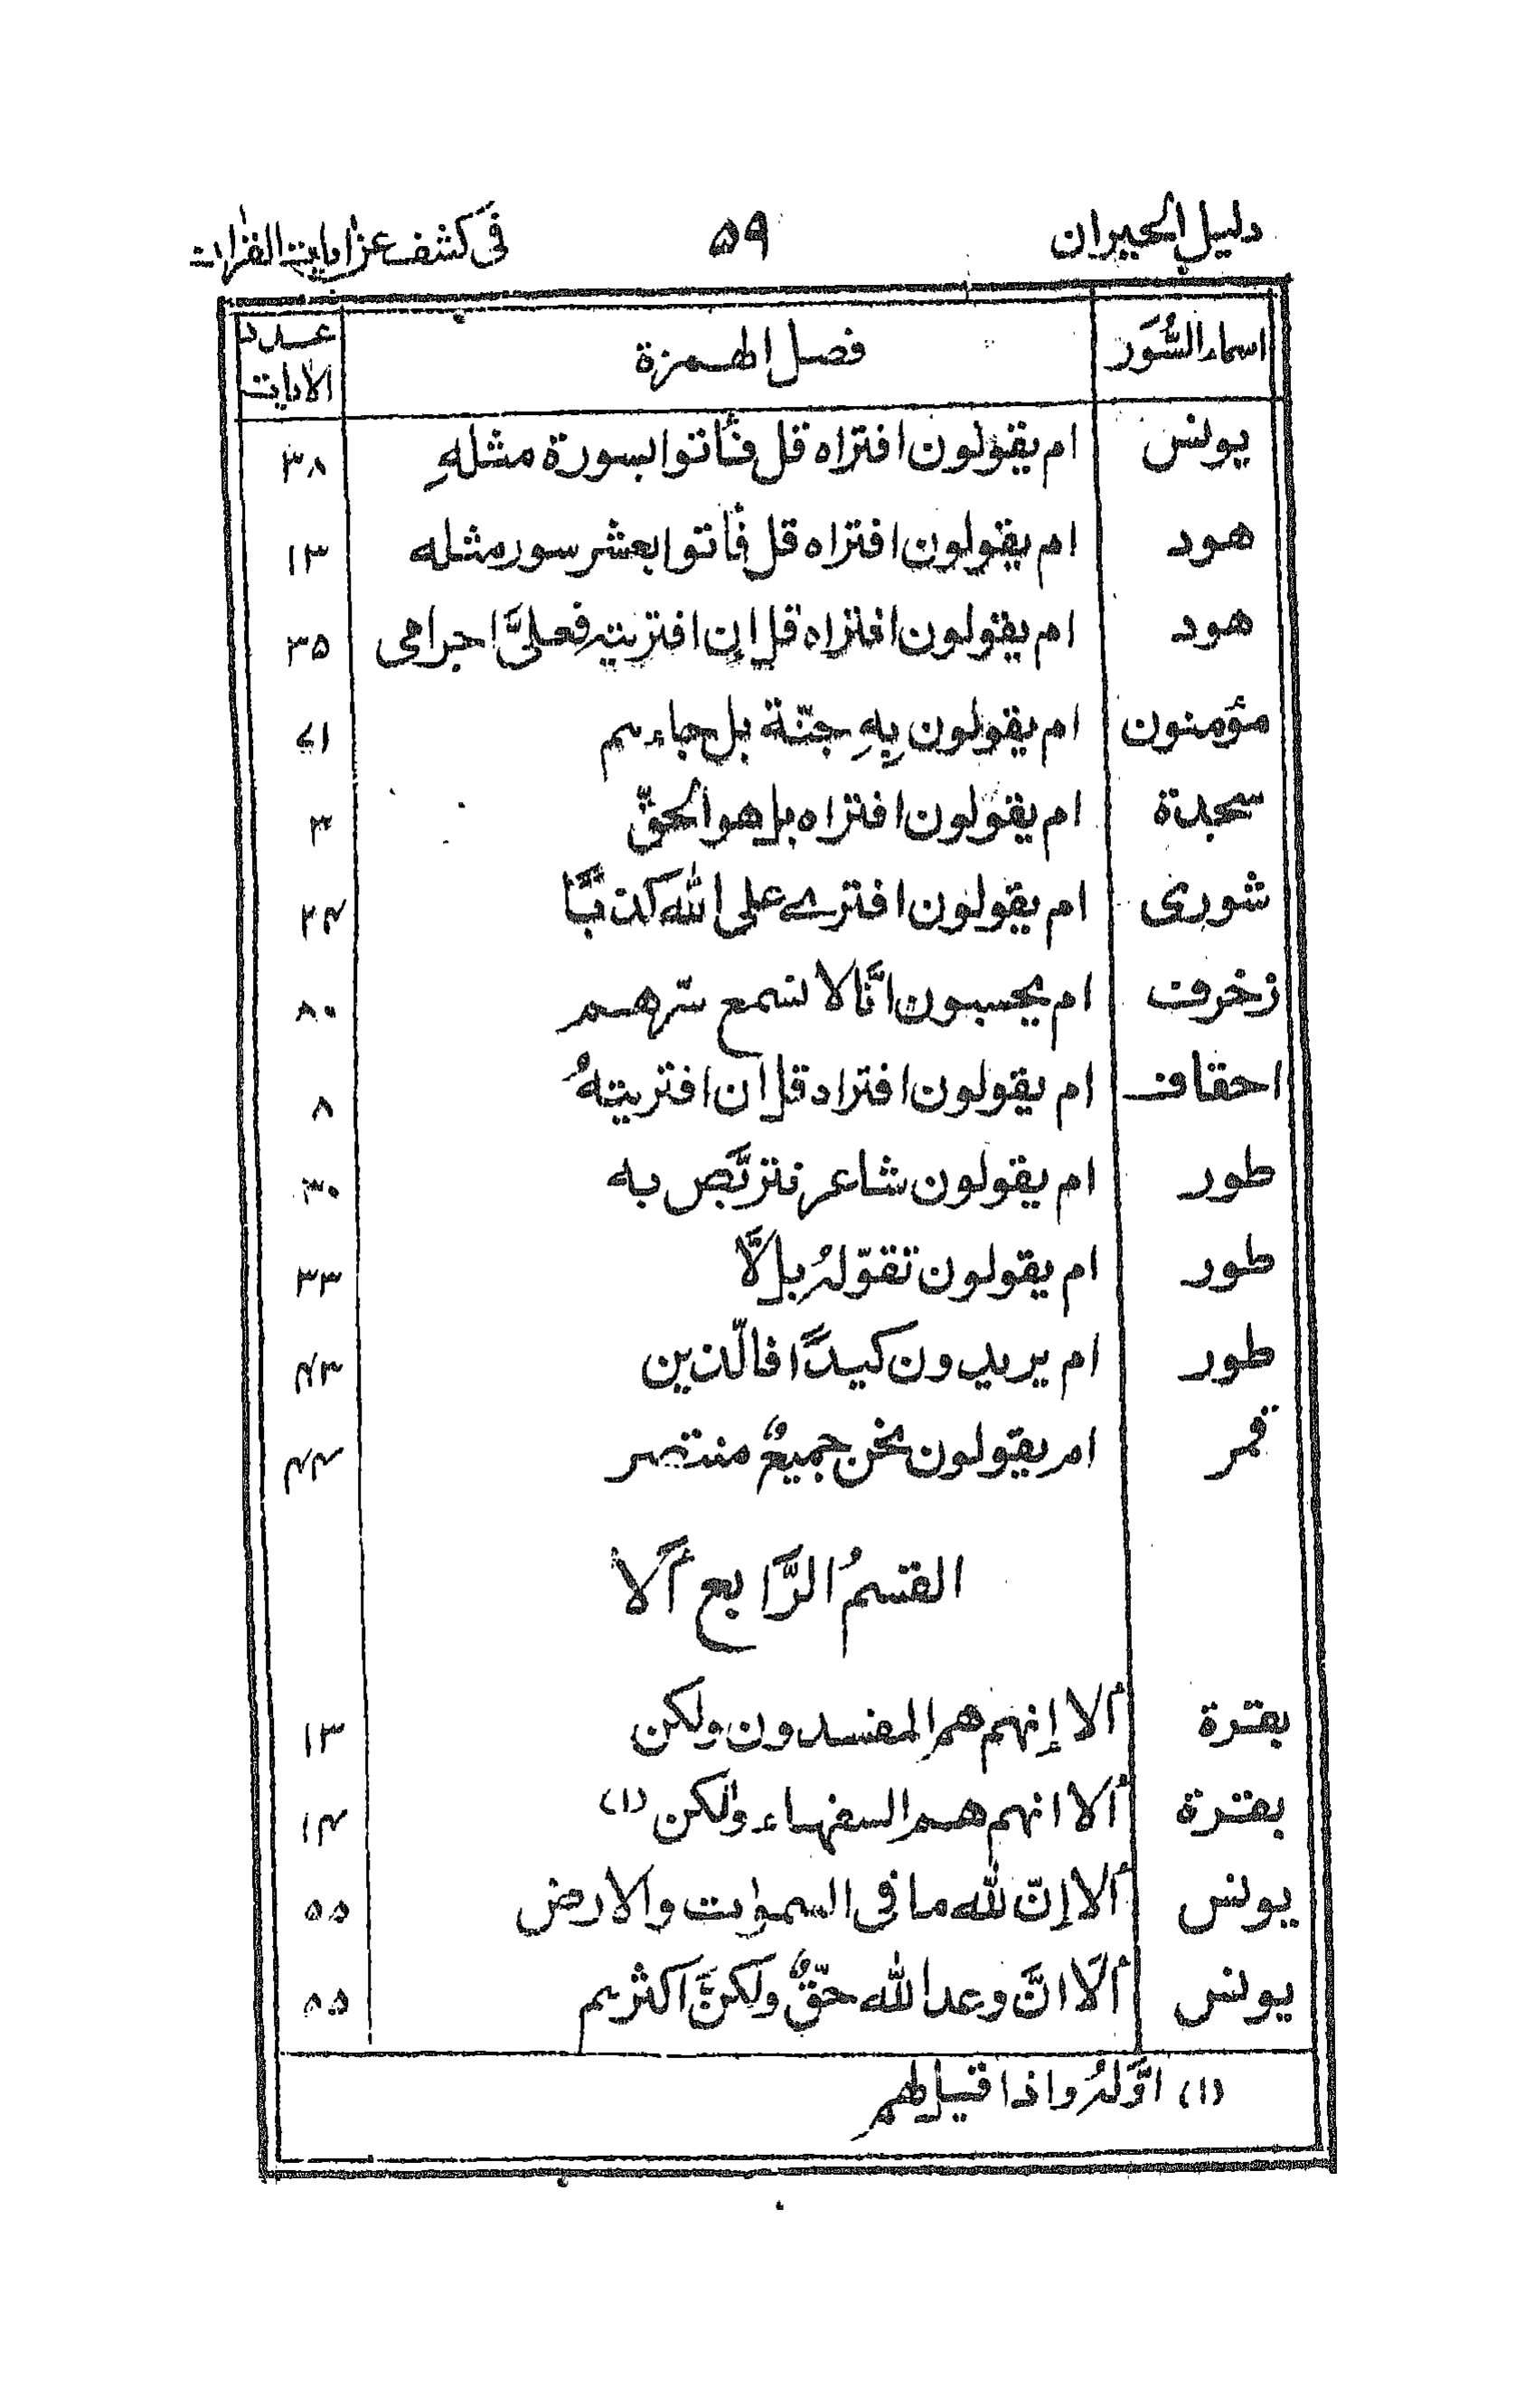 دليل الحيران ۵۹ فى كشف عن اٰيات القراٰن
اسماء السُّوَر فصل الهمزة عدد الاٰيات
يونس ام يقولون افتراه قل فأتوا بسورة مثلهِ ۳۸
هود ام يقولون افتراه قل فأتوا بعشر سور مثله ۱۳
هود ام يقولون افتراه قل إن افتريته فعلىَّ اجرامى ۳۵
مؤمنون ام يقولون بِهِ جنّة بل جاءهم ۷۱
سجدة ام يقولون افتراه بل هو الحقّ ۳
شورى ام يقولون افترے على الله كذبًا ۲۴
زخرف ام يحسبون انَّا لا نسمع سرّهم ۸۰
احقاف ام يقولون افتراه قل ان افتريتهُ ۸
طور ام يقولون شاعر نتربَّص به ۳۰
طور ام يقولون تقوّلهُ بل لَّا ۳۳
طور ام يريدون كيدًا فالّذين ۴۳
قمر ام يقولون نحن جميعٌ منتصر ۴۴
القسمُ الرَّابع اَلَا
بقرة ألا إنهم هم المفسدون ولكن ۱۳
بقرة ألا انهم هم السفهاء ولٰكن (۱) ۱۴
يونس ألا إنّ لله ما فى السمٰوات والارض ۵۵
يونس ألَا انَّ وعد الله حقٌّ ولكنَّ اكثرهم ۵۵
(۱) اوَّلهُ واذا قيل لهم